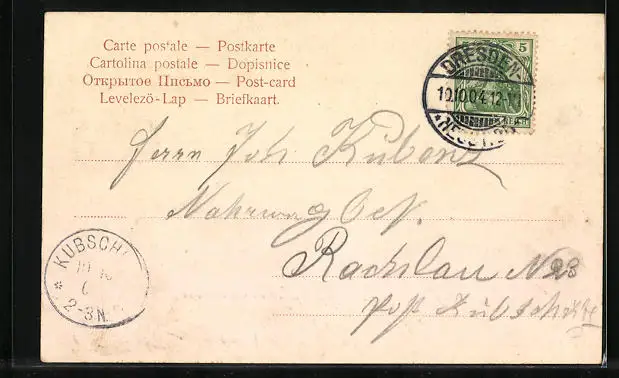 Carte postale — Postkarte
Cartolina postale — Dopisnice
Открытое Письмо — Post-card
Levelező-Lap — Briefkaart.
5
DRESDEN-
19.10.04.12-
* NEUST.
Herrn Joh Kubenz
Nahrung
Rachlau No 28
Post Kubschütz
KUBSCH
2-3N.